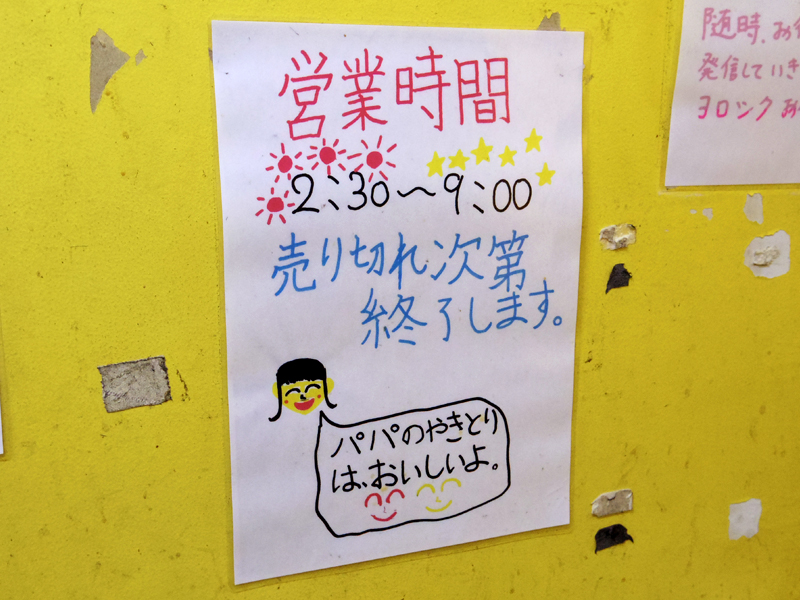 営業時間
2:30～9:00
売り切れ次第
終了します。
パパのやきとり
は、おいしいよ。
随時、お
発信していき
ヨロシク お